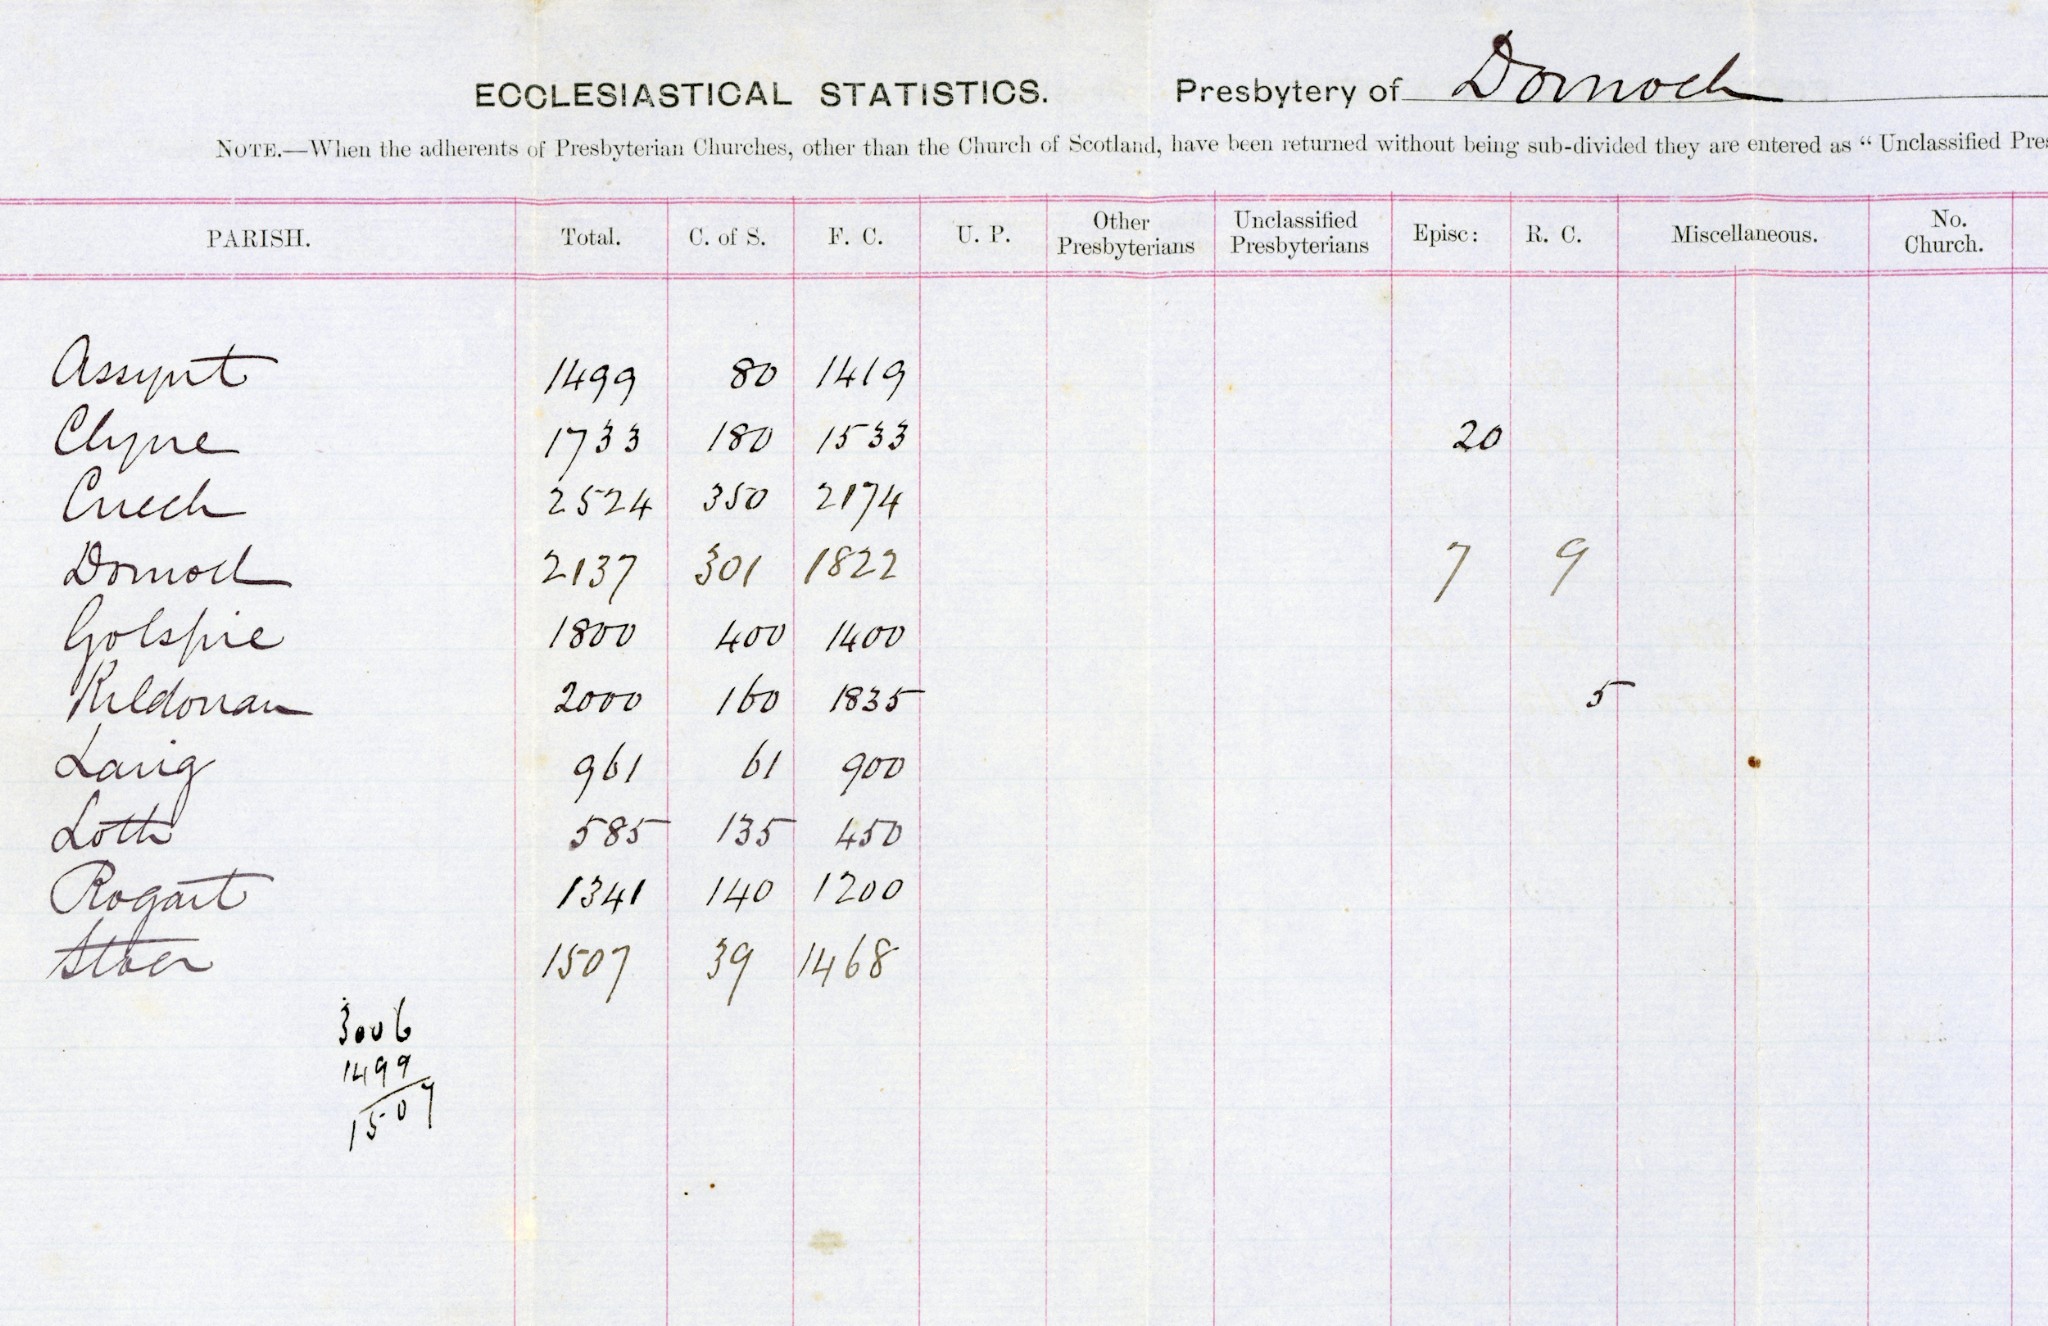 ECCLESIASTICAL STATISTICS. Presbytery of Dornoch
NOTE.—When the adherents of Presbyterian Churches, other than the Church of Scotland, have been returned without being sub-divided they are entered as "Unclassified Pres
PARISH. Total. C. of S. F. C. U. P. Other Presbyterians Unclassified Presbyterians Episc: R. C. Miscellaneous. No. Church.
Assynt 1499 80 1419
Clyne 1733 180 1533 20
Creech 2524 350 2174
Dornoch 2137 301 1822 7 9
Golspie 1800 400 1400
Kildonan 2000 160 1835 5
Lairg 961 61 900
Loth 585 135 450
Rogart 1341 140 1200
Stoer 1507 39 1468
3006
1499
1507